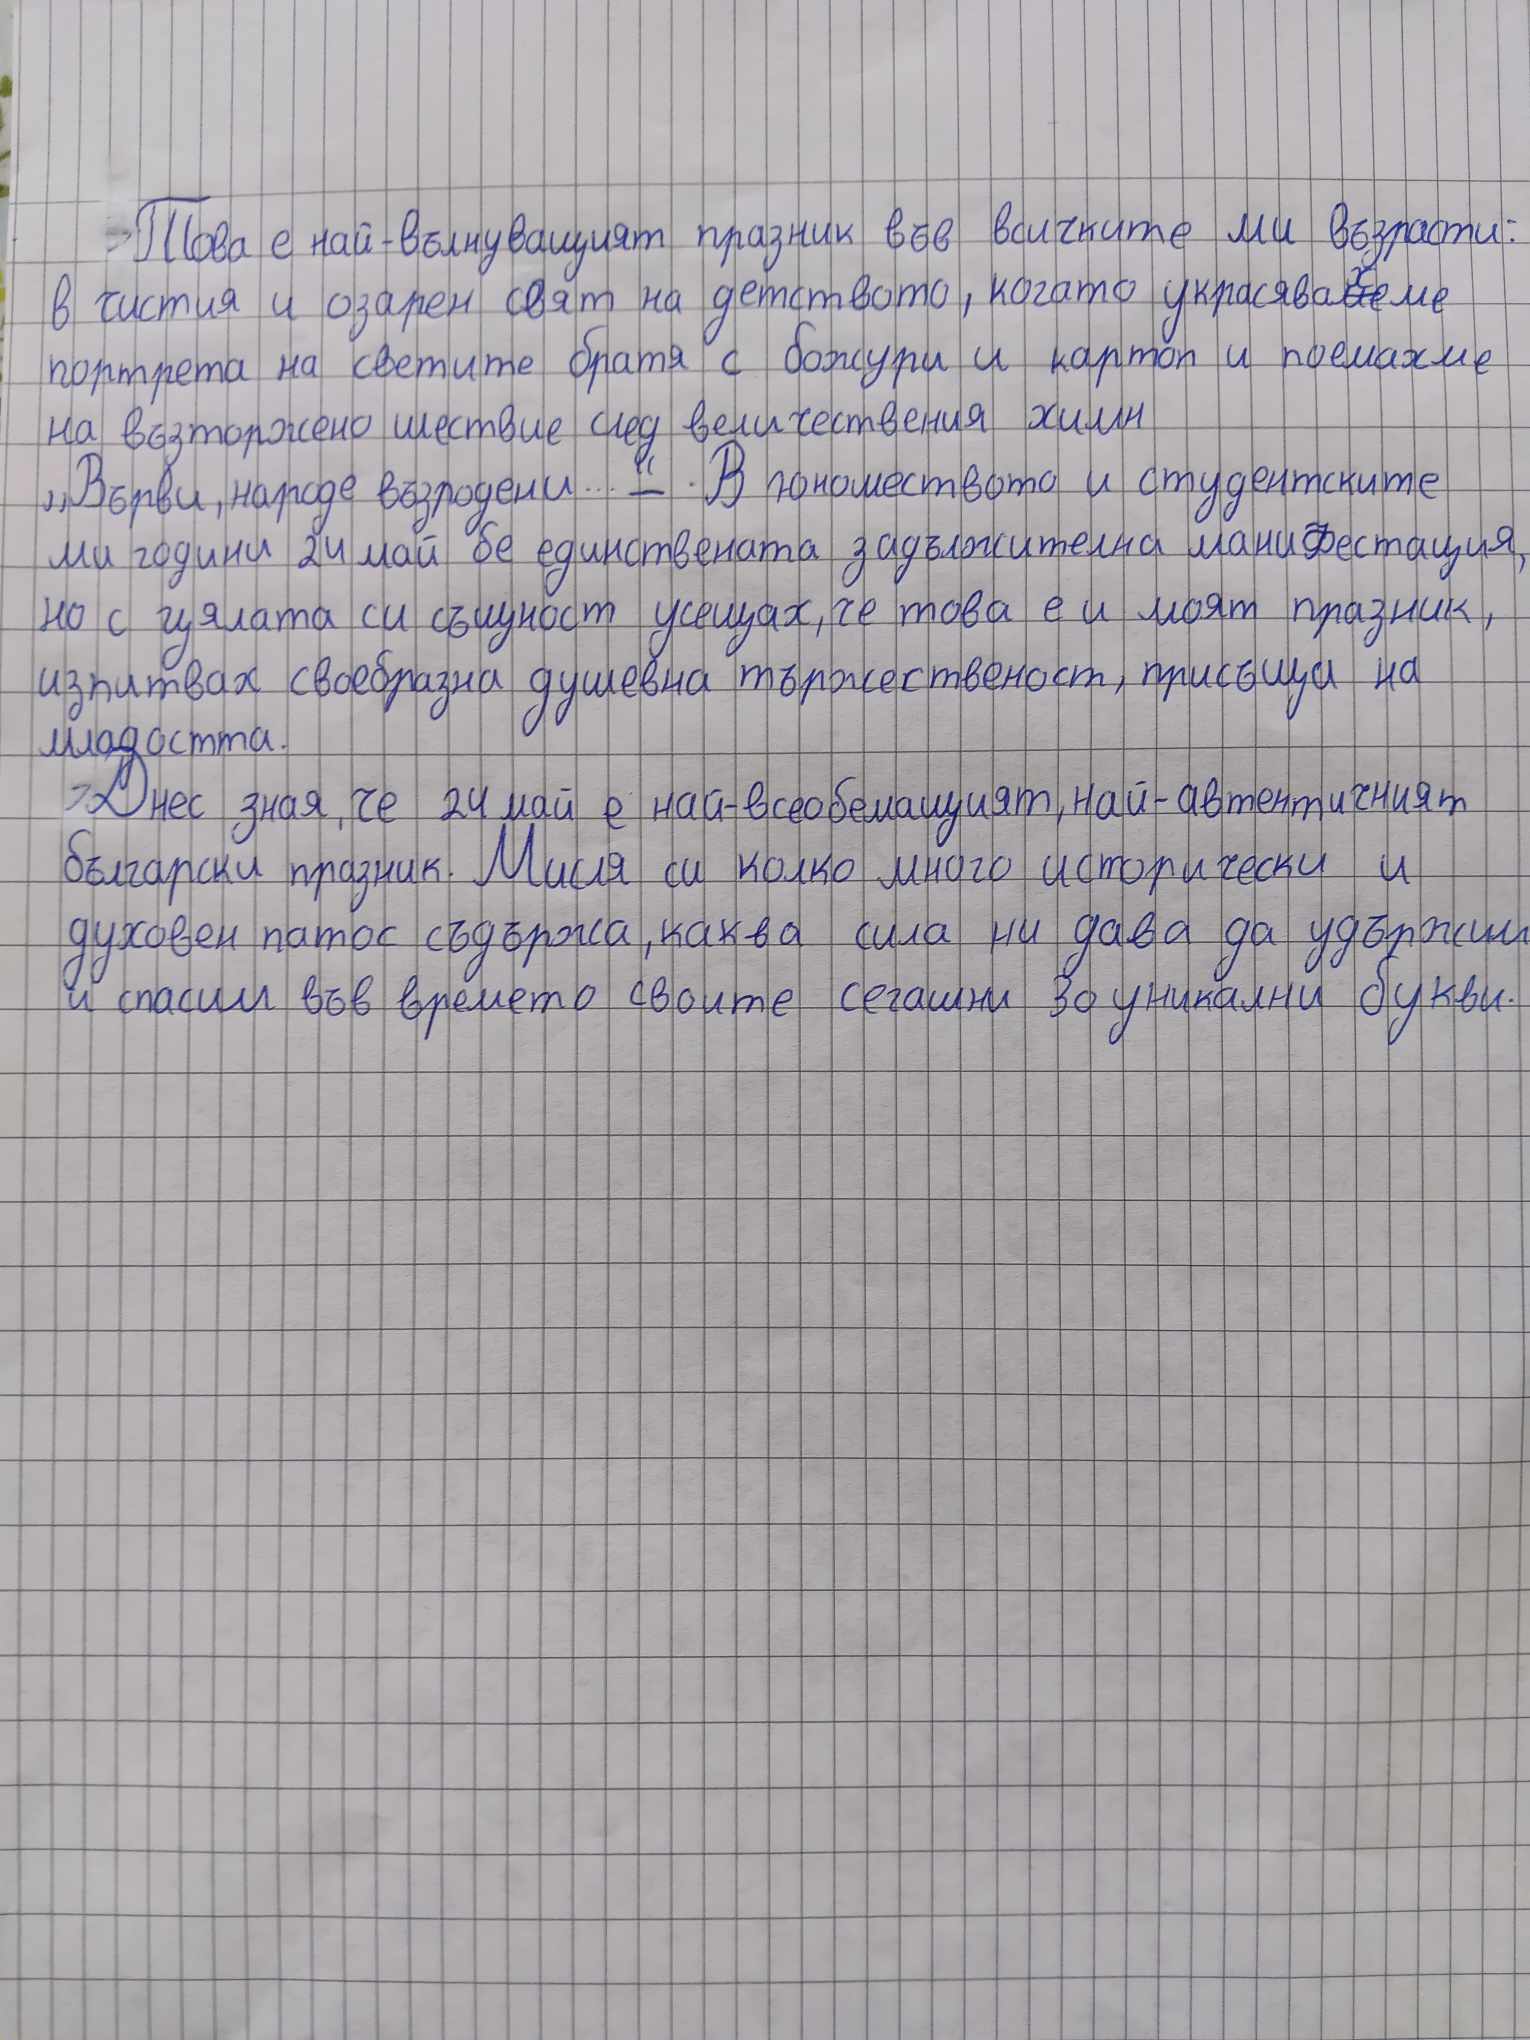 Това е най-вълнуващият празник във всичките ми възрасти:
в чистия и озарен свят на детството, когато украсявахме
портрета на светите братя с божури и картоп и поемахме
на възторжено шествие след величествения химн
„Върви, народе възродени...“. В юношеството и студентските
ми години 24 май бе единствената задължителна манифестация,
но с цялата си същност усещах, че това е и моят празник,
изпитвах своебразна душевна тържественост, присъща на
младостта.
Днес зная, че 24 май е най-всеобемащият, най-автентичният
български празник. Мисля си колко много исторически и
духовен патос съдържа, каква сила ни дава да удържим
и спасим във времето своите сегашни 30 уникални букви.